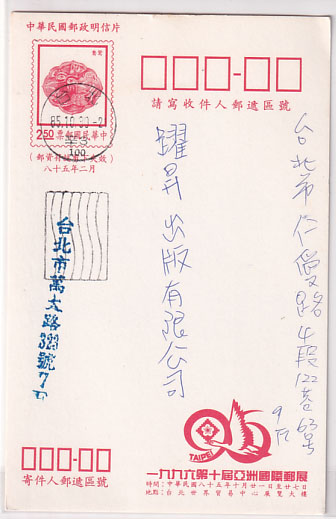 中華民國郵政明信片
鴛鴦
2.50 票郵國民華中
八十五年二月
請寫收件人郵遞區號
台北市仁愛路4段122巷63號
9F
躍昇出版有限公司
台北市萬大路
TAIPEI
一九九六第十屆亞洲國際郵展
時間：中華民國八十五年十月廿一日至廿七日
地點：台北世界貿易中心展覽大樓
寄件人郵遞區號